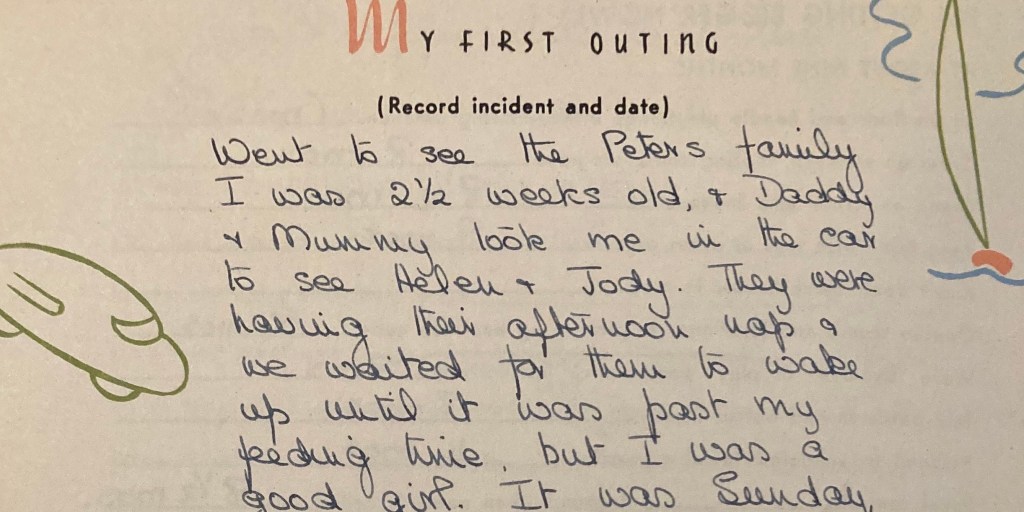 MY FIRST OUTING
(Record incident and date)
Went to see the Peters family
I was 2½ weeks old, & Daddy
& Mummy took me in the car
to see Helen & Jody. They were
having their afternoon nap &
we waited for them to wake
up until it was past my
feeding time, but I was a
good girl. It was Sunday,